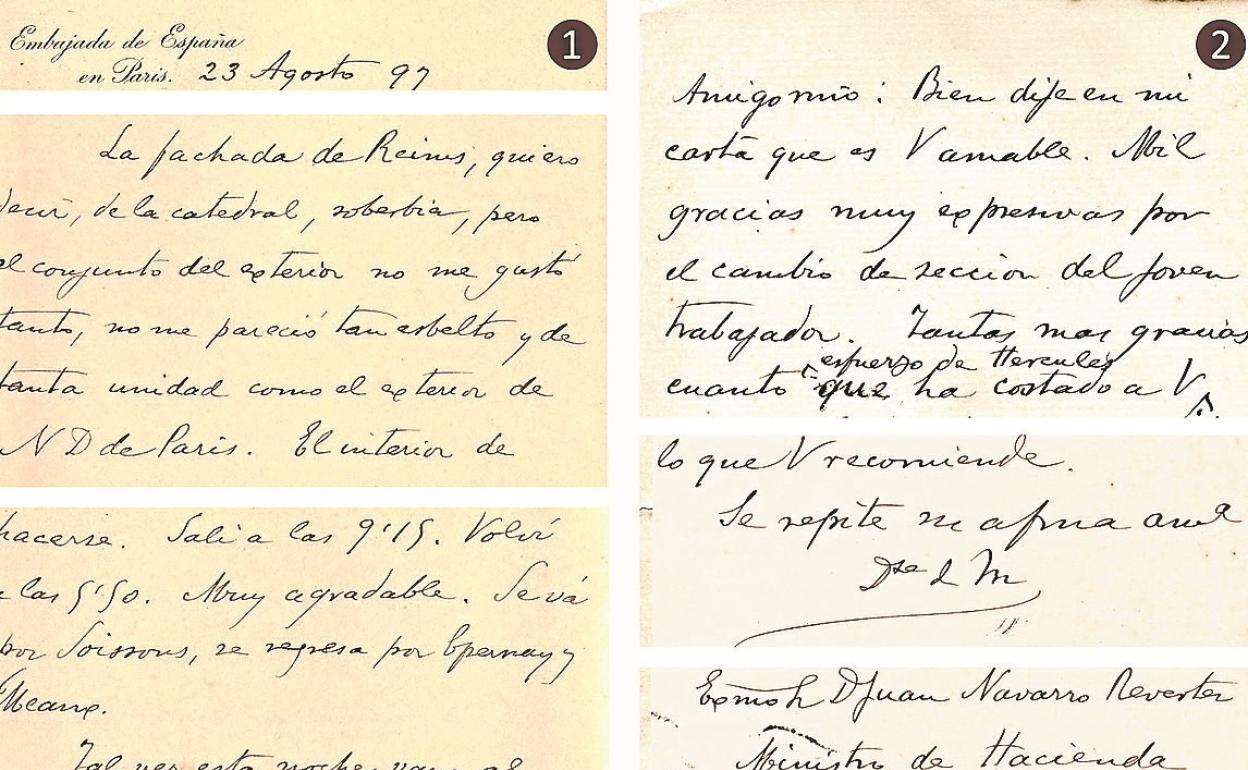 1
Embajada de España
en Paris. 23 Agosto 97
La fachada de Reims, quiero
decir, de la catedral, soberbia, pero
el conjunto del exterior no me gustó
tanto, no me pareció tan esbelto y de
tanta unidad como el exterior de
N D de Paris. El interior de
hacerse. Salí a las 9'15. Volví
a las 5'50. Muy agradable. Se vá
por Soissons, se regresa por Epernay y
Meaux.
Tal vez esta noche vaya al
2
Amigo mío: Bien dije en mi
carta que es V amable. Mil
gracias muy expresivas por
el cambio de seccion del joven
trabajador. Tantas mas gracias
esfuerzo de Hercules
cuanto que ha costado a V
lo que V recomiende.
Se repite su afma
Dsa d M
D Juan Navarro Reverter
Ministro de Hacienda